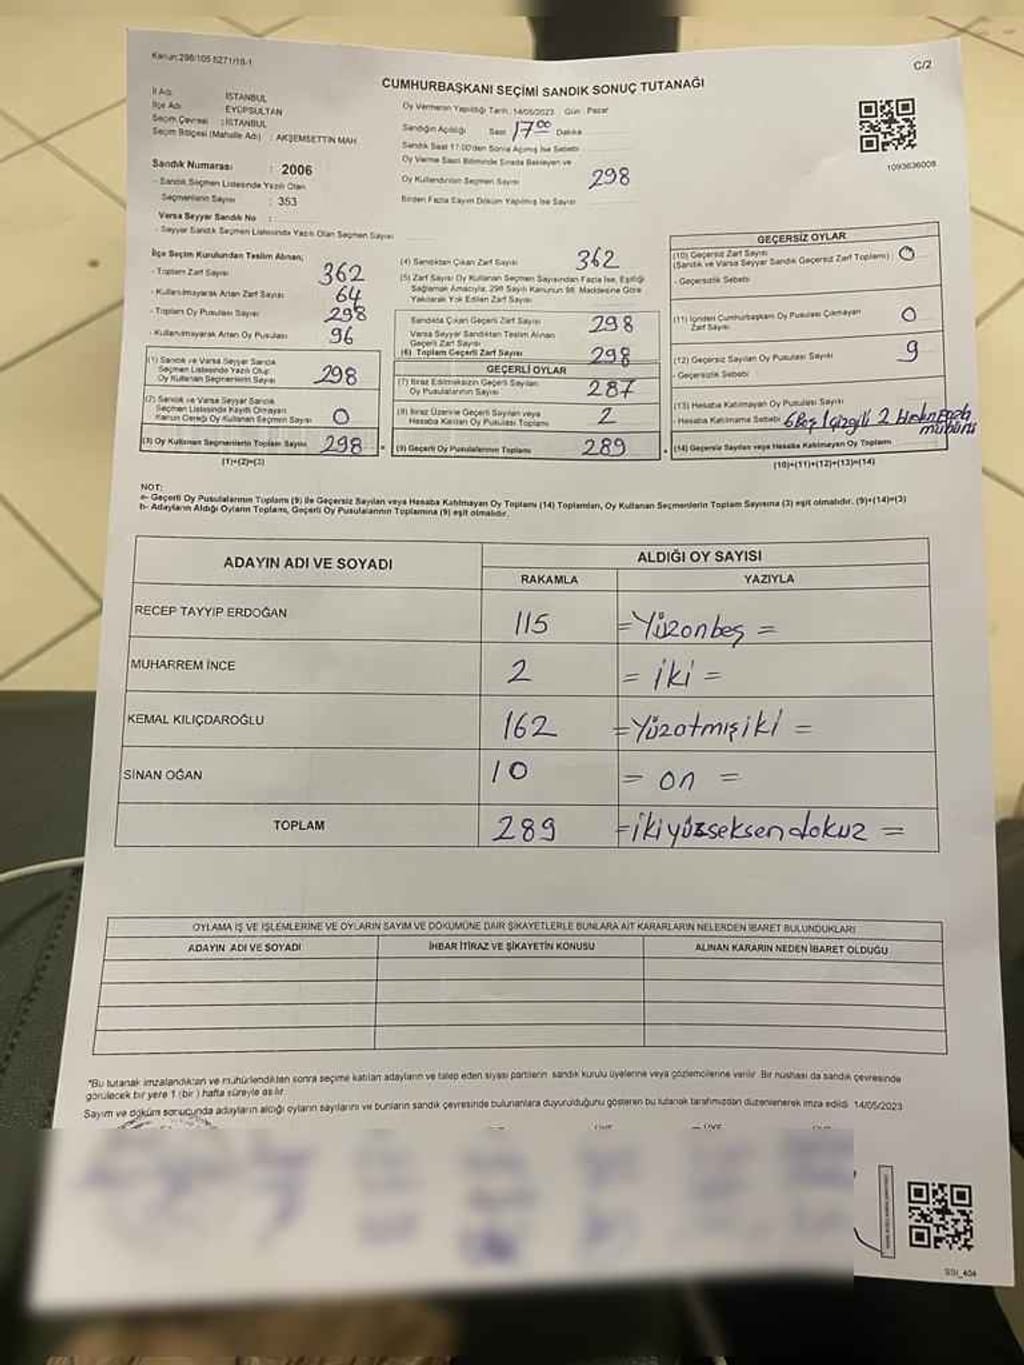 Kanun:298/105 6271/18-1
C/2
CUMHURBAŞKANI SEÇİMİ SANDIK SONUÇ TUTANAĞI
İl Adı : İSTANBUL
İlçe Adı : EYÜPSULTAN
Seçim Çevresi : İSTANBUL
Seçim Bölgesi (Mahalle Adı) : AKŞEMSETTİN MAH.
Sandık Numarası : 2006
- Sandık Seçmen Listesinde Yazılı Olan
Seçmenlerin Sayısı : 353
Varsa Seyyar Sandık No :
- Seyyar Sandık Seçmen Listesinde Yazılı Olan Seçmen Sayısı
Oy Vermenin Yapıldığı Tarih: 14/05/2023 Gün: Pazar
Sandığın Açıldığı Saat 17 00 Dakika
Sandık Saat 17:00'den Sonra Açılmış İse Sebebi
Oy Verme Saati Bitiminde Sırada Bekleyen ve
Oy Kullandırılan Seçmen Sayısı 298
Birden Fazla Sayım Döküm Yapılmış İse Sayısı
1093636008
İlçe Seçim Kurulundan Teslim Alınan;
- Toplam Zarf Sayısı 362
- Kullanılmayarak Artan Zarf Sayısı 64
- Toplam Oy Pusulası Sayısı 298
- Kullanılmayarak Artan Oy Pusulası 96
(1) Sandık ve Varsa Seyyar Sandık
Seçmen Listesinde Yazılı Olup
Oy Kullanan Seçmenlerin Sayısı 298
(2) Sandık ve Varsa Seyyar Sandık
Seçmen Listesinde Kayıtlı Olmayan
Kanun Gereği Oy Kullanan Seçmen Sayısı 0
(3) Oy Kullanan Seçmenlerin Toplam Sayısı 298
(1)+(2)=(3)
(4) Sandıktan Çıkan Zarf Sayısı 362
(5) Zarf Sayısı Oy Kullanan Seçmen Sayısından Fazla İse, Eşitliği
Sağlamak Amacıyla, 298 Sayılı Kanunun 98. Maddesine Göre
Yakılarak Yok Edilen Zarf Sayısı
Sandıkta Çıkan Geçerli Zarf Sayısı 298
Varsa Seyyar Sandıktan Teslim Alınan
Geçerli Zarf Sayısı
(6) Toplam Geçerli Zarf Sayısı 298
GEÇERLİ OYLAR
(7) İtiraz Edilmeksizin Geçerli Sayılan
Oy Pusulalarının Sayısı 287
(8) İtiraz Üzerine Geçerli Sayılan veya
Hesaba Katılan Oy Pusulası Toplamı 2
(9) Geçerli Oy Pusulalarının Toplamı 289
GEÇERSİZ OYLAR
(10) Geçersiz Zarf Sayısı
(Sandık ve Varsa Seyyar Sandık Geçersiz Zarf Toplamı) 0
- Geçersizlik Sebebi
(11) İçinden Cumhurbaşkanı Oy Pusulası Çıkmayan
Zarf Sayısı 0
(12) Geçersiz Sayılan Oy Pusulası Sayısı 9
- Geçersizlik Sebebi
(13) Hesaba Katılmayan Oy Pusulası Sayısı
- Hesaba Katılmama Sebebi 6 Boş 1 çizgili 2
(14) Geçersiz Sayılan veya Hesaba Katılmayan Oy Toplamı
(10)+(11)+(12)+(13)=(14)
NOT:
a- Geçerli Oy Pusulalarının Toplamı (9) ile Geçersiz Sayılan veya Hesaba Katılmayan Oy Toplamı (14) Toplamları, Oy Kullanan Seçmenlerin Toplam Sayısına (3) eşit olmalıdır. (9)+(14)=(3)
b- Adayların Aldığı Oyların Toplamı, Geçerli Oy Pusulalarının Toplamına (9) eşit olmalıdır.
ADAYIN ADI VE SOYADI
ALDIĞI OY SAYISI
RAKAMLA YAZIYLA
RECEP TAYYIP ERDOĞAN 115 =Yüzonbeş =
MUHARREM İNCE 2 = iki =
KEMAL KILIÇDAROĞLU 162 =Yüzatmışiki =
SİNAN OĞAN 10 = on =
TOPLAM 289 =ikiyüzseksendokuz =
OYLAMA İŞ VE İŞLEMLERİNE VE OYLARIN SAYIM VE DÖKÜMÜNE DAİR ŞİKAYETLERLE BUNLARA AİT KARARLARIN NELERDEN İBARET BULUNDUKLARI
ADAYIN ADI VE SOYADI İHBAR İTİRAZ VE ŞİKAYETİN KONUSU ALINAN KARARIN NEDEN İBARET OLDUĞU
*Bu tutanak imzalandıktan ve mühürlendikten sonra seçime katılan adayların ve talep eden siyasi partilerin sandık kurulu üyelerine veya gözlemcilerine verilir. Bir nüshası da sandık çevresinde
görülecek bir yere 1 (bir) hafta süreyle asılır.
Sayım ve döküm sonucunda adayların aldığı oyların sayılarını ve bunların sandık çevresinde bulunanlara duyurulduğunu gösteren bu tutanak tarafımızdan düzenlenerek imza edildi. 14/05/2023